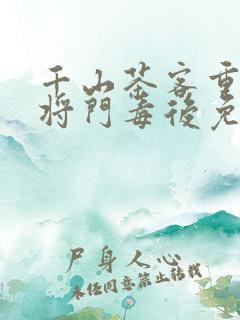 千山茶客重
将門毒後免
尸身人心
未经同意禁止转载